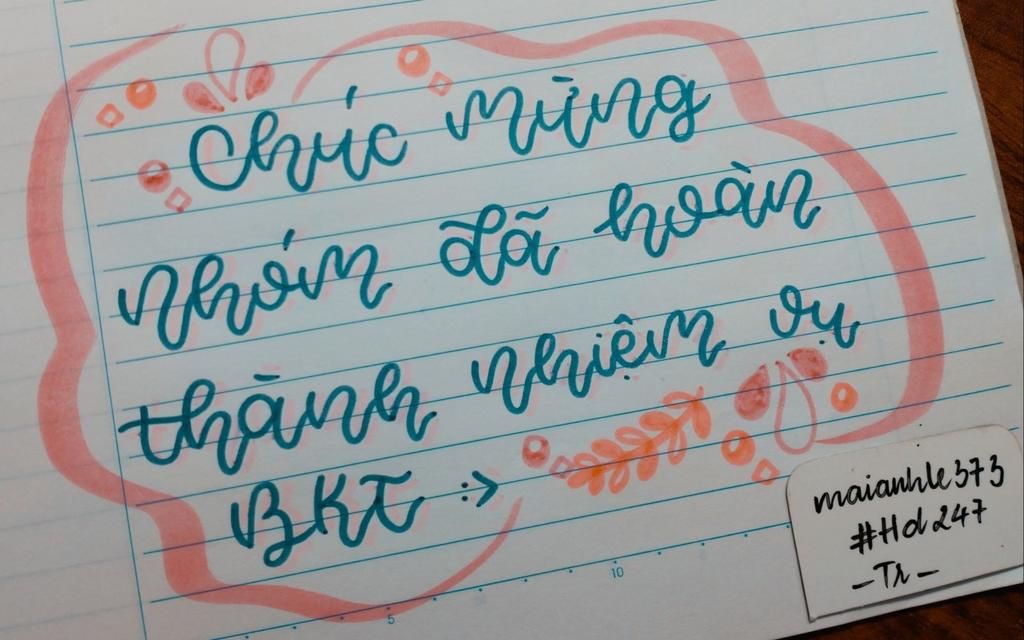 Chúc mừng
nhóm đã hoàn
thành nhiệm vụ
BKT :>
maianhle373
#Hd247
-Tr-
5
10